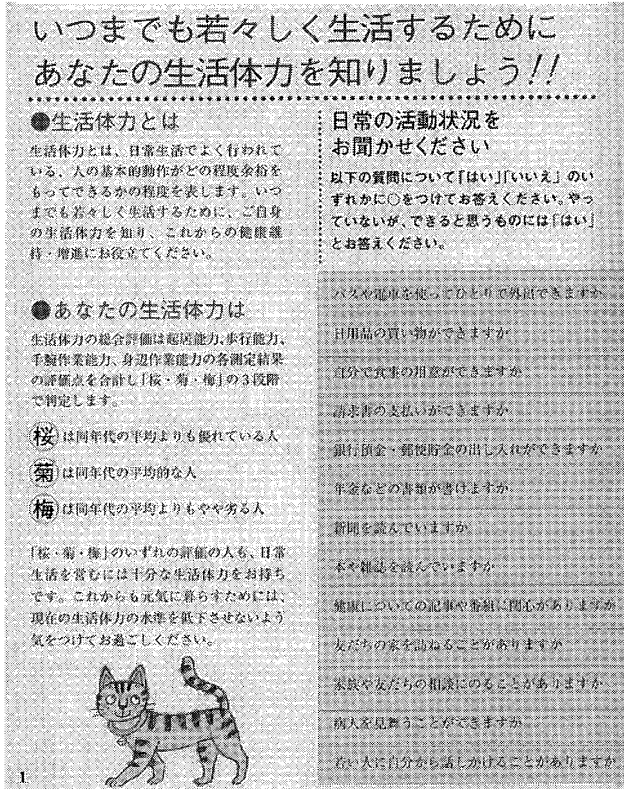 いつまでも若々しく生活するために
あなたの生活体力を知りましょう!!
●生活体力とは
生活体力とは、日常生活でよく行われて
いる、人の基本的動作がどの程度余裕を
もってできるかの程度を表します。いつ
までも若々しく生活するために、ご自身
の生活体力を知り、これからの健康維
持・増進にお役立てください。
●あなたの生活体力は
生活体力の総合評価は起居能力、歩行能力、
手腕作業能力、身辺作業能力の各測定結果
の評価点を合計し「桜・菊・梅」の3段階
で判定します。
桜は同年代の平均よりも優れている人
菊は同年代の平均的な人
梅は同年代の平均よりもやや劣る人
「桜・菊・梅」のいずれの評価の人も、日常
生活を営むには十分な生活体力をお持ち
です。これからも元気に暮らすためには、
現在の生活体力の水準を低下させないよう
気をつけてお過ごしください。
1
日常の活動状況を
お聞かせください
以下の質問について「はい」「いいえ」のい
ずれかに○をつけてお答えください。やっ
ていないが、できると思うものには「はい」
とお答えください。
バスや電車を使ってひとりで外出できますか
日用品の買い物ができますか
自分で食事の用意ができますか
請求書の支払いができますか
銀行預金・郵便貯金の出し入れができますか
年金などの書類が書けますか
新聞を読んでいますか
本や雑誌を読んでいますか
健康についての記事や番組に関心がありますか
友だちの家を訪ねることがありますか
家族や友だちの相談にのることがありますか
病人を見舞うことができますか
若い人に自分から話しかけることがありますか